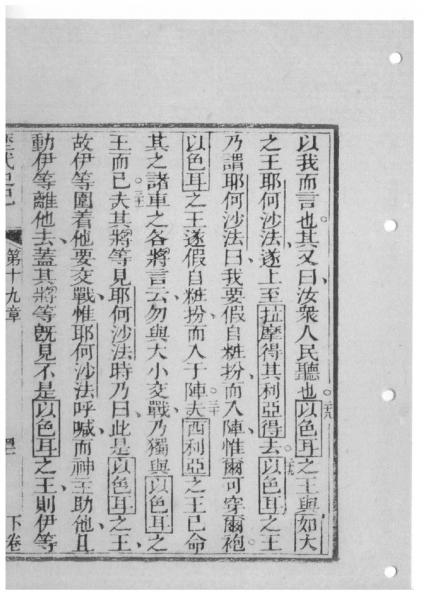 以我而言也其又曰汝衆人民聽也以色耳之王與如大
之王耶何沙法遂上至拉摩得其利亞得去以色耳之王
乃謂耶何沙法曰我要假自粧扮而入陣惟爾可穿爾袍
以色耳之王遂假自粧扮而入于陣夫西利亞之王已命
其之諸車之各將言云勿與大小交戰乃獨與以色耳之
王而已夫其將等見耶何沙法時乃曰此是以色耳之王
故伊等圍着他要交戰惟耶何沙法呼喊而神主助他且
動伊等離他去蓋其將等旣見不是以色耳之王則伊等
第十九章 下卷